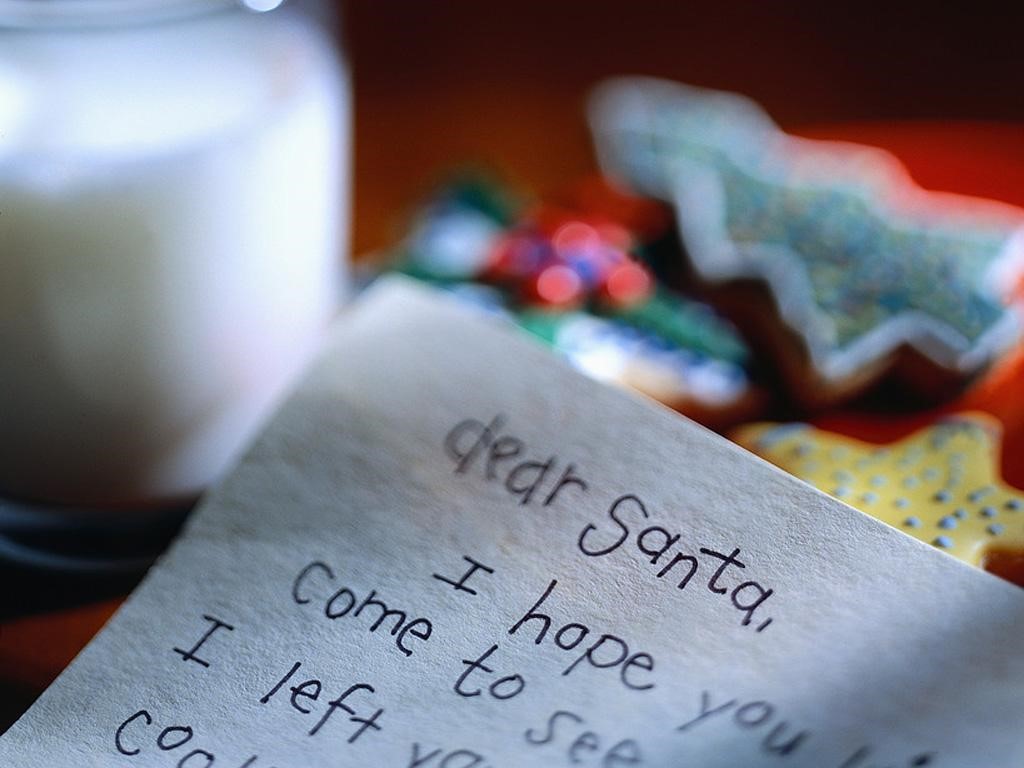 dear Santa,
I hope you
come to see
I left